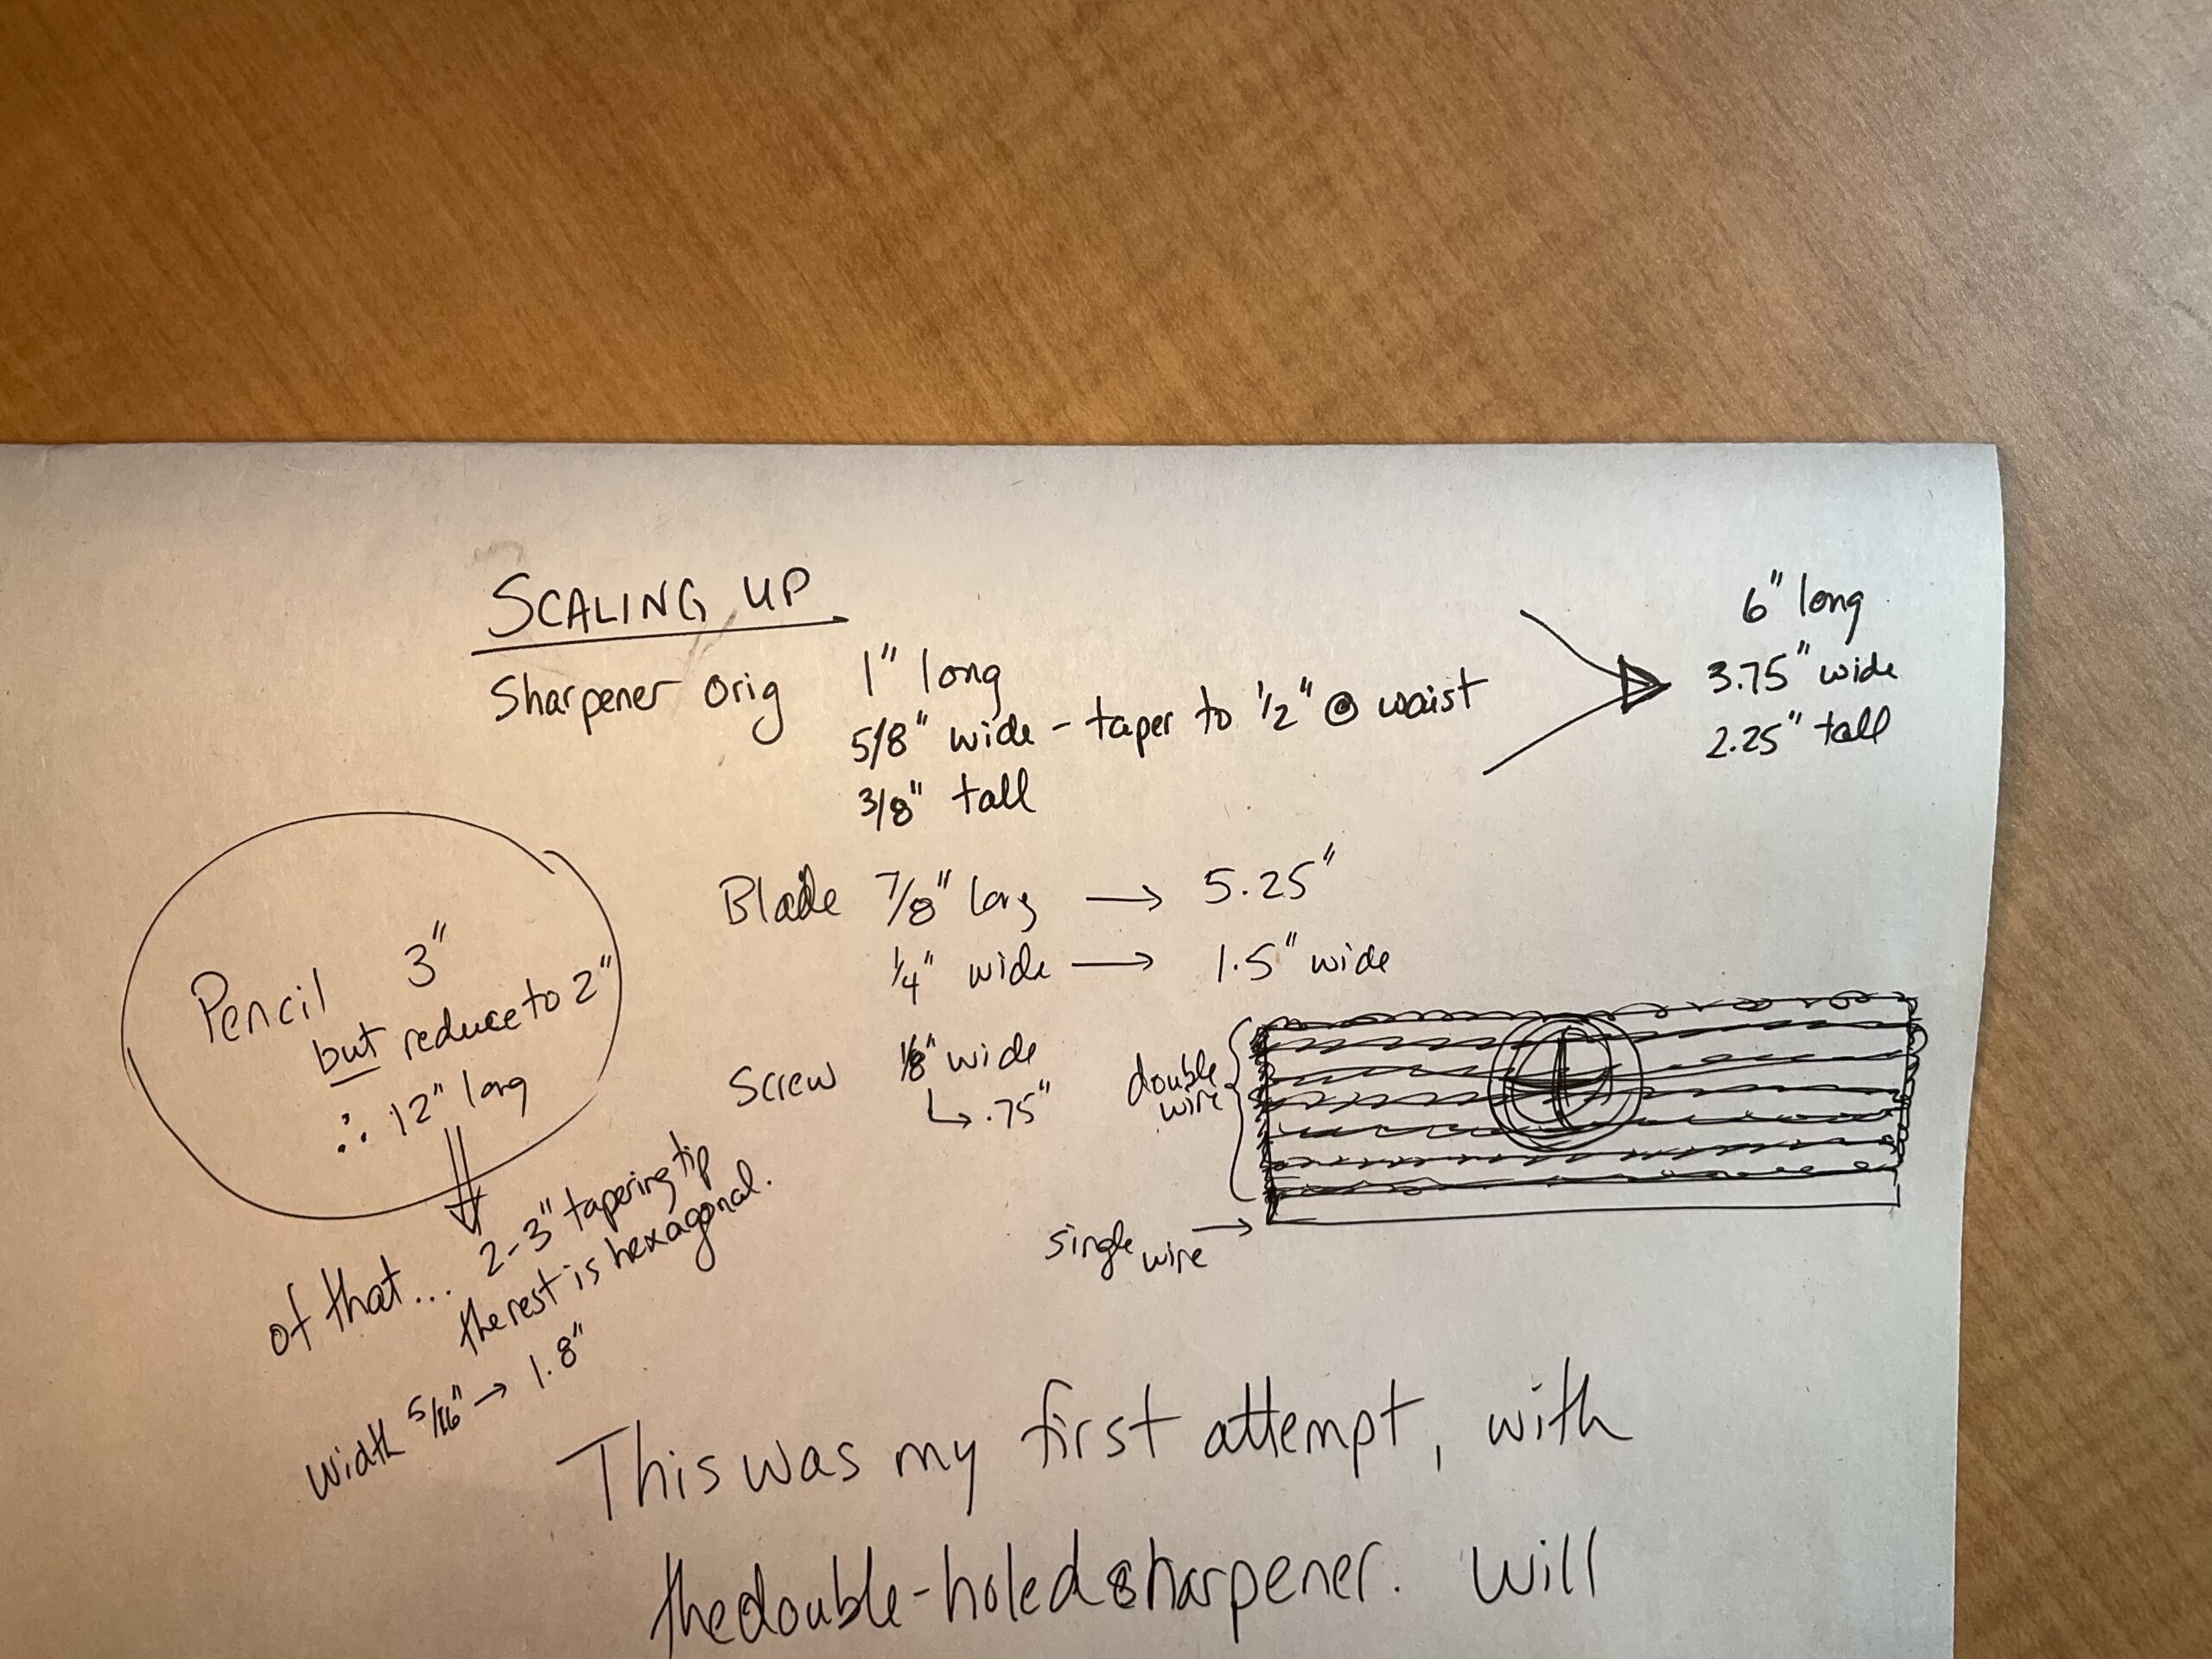 SCALING UP
Sharpener orig 1" long
5/8" wide - taper to 1/2" @ waist
3/8" tall
6" long
3.75" wide
2.25" tall
Blade 7/8" long → 5.25"
1/4" wide → 1.5" wide
Screw 1/8" wide
↳ .75"
double
wire
single wire →
Pencil 3"
but reduce to 2"
∴ 12" long
of that... 2-3" tapering tip
the rest is hexagonal.
width 5/16" → 1.8"
This was my first attempt, with
the double-holed sharpener. Will